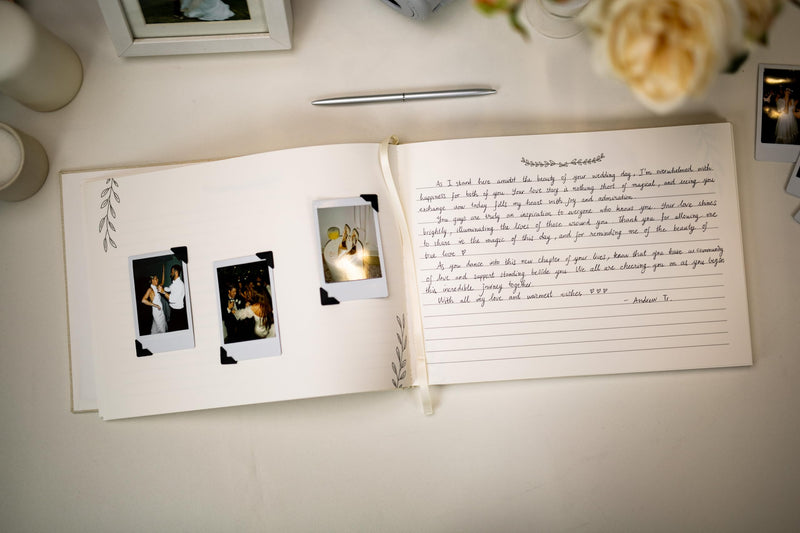 As I stand here amidst the beauty of your wedding day, I'm overwhelmed with
happiness for both of you. Your love story is nothing short of magical, and seeing you
exchange vows today fills my heart with joy and admiration.
You guys are truly an inspiration to everyone who knows you. Your love shines
brightly, illuminating the lives of those around you. Thank you for allowing me
to share in the magic of this day, and for reminding me of the beauty of
true love ♡
As you dance into this new chapter of your lives, know that you have a community
of love and support standing beside you. We all are cheering you on as you begin
this incredible journey together.
With all my love and warmest wishes ♡ ♡ ♡
- Andrew Tr.